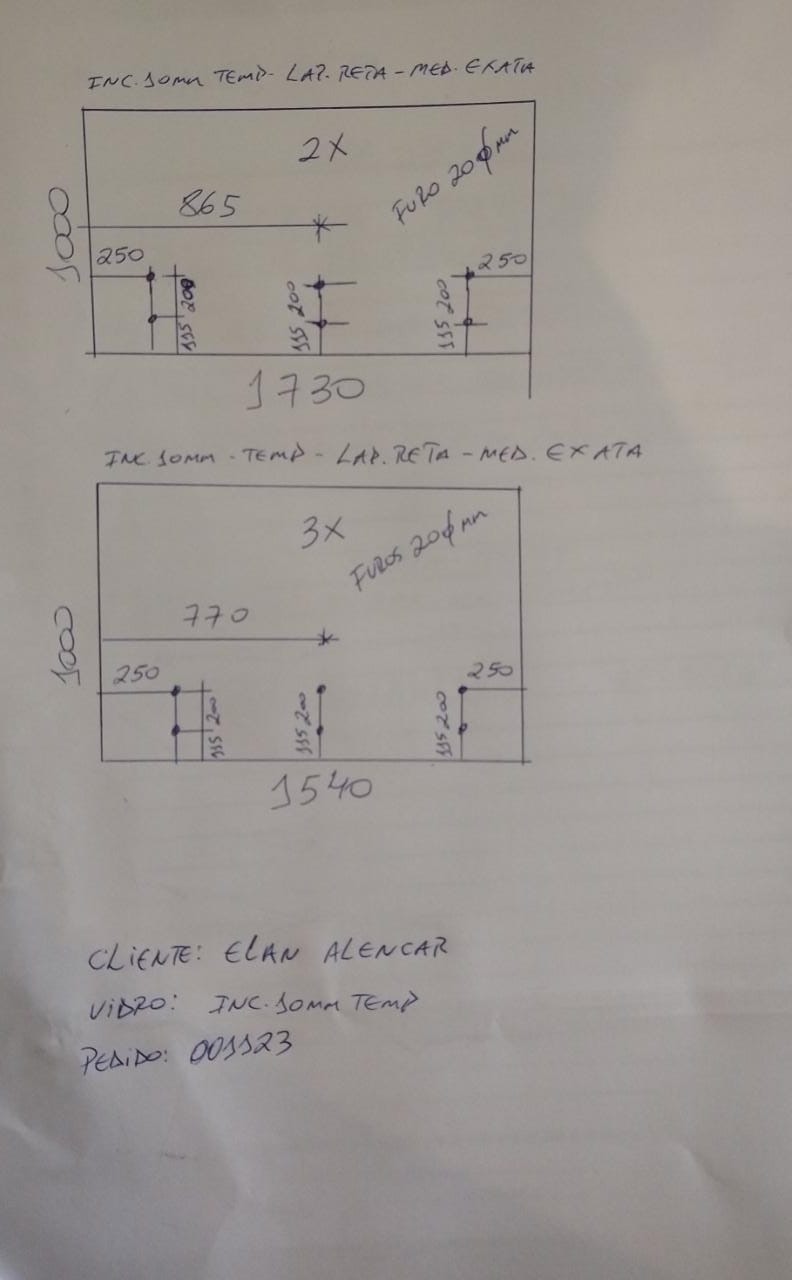 INC. 10mm TEMP - LAP. RETA - MED. EXATA
2X
FURO 20ϕmm
865
1000
250
250
115 200
115 200
115 200
1730
INC. 10mm - TEMP - LAP. RETA - MED. EXATA
3X
FUROS 20ϕmm
770
1000
250
250
115 200
115 200
115 200
1540
CLIENTE: ELAN ALENCAR
VIDRO: INC. 10mm TEMP
PEDIDO: 001123